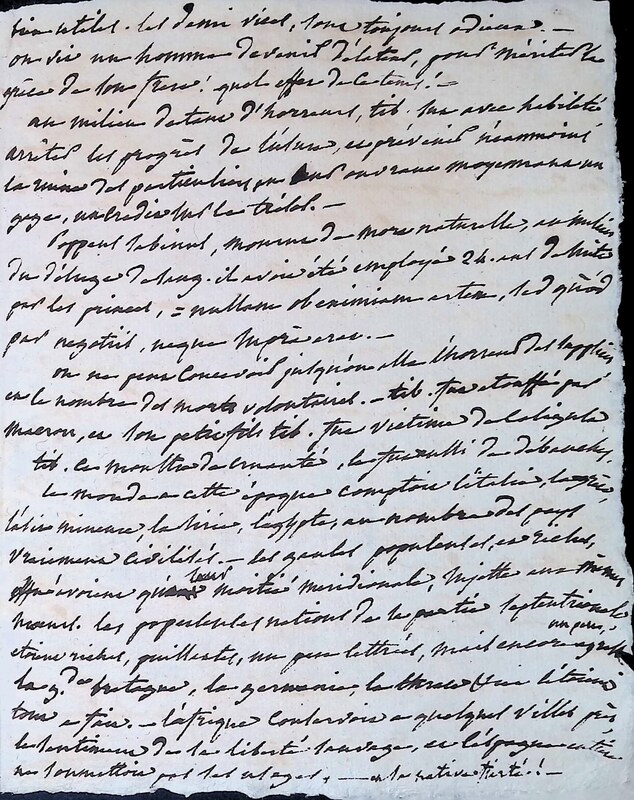 bien utiles. les demi vices, sont toujours odieux. —
on vit un homme devenir délateur, pour mériter la
grâce de son frere! quel effet de ce tems! —
au milieu de tant d'horreurs, tib. sut avec habileté
arrêter les progrès de l'usure, et prévenir néanmoins
la ruine des particuliers, en leur ouvrant moyennant un
gage, un credit sur le trésor. —
Poppeus Sabinus, mourut de mort naturelle, au milieu
du déluge de sang. il avoit été employé 24. ans de suite
par les princes, = nullam ob eximiam artem, sed quòd
par negotiis, neque supra erat. —
on ne peut concevoir jusqu'où alla l'horreur des supplices
et le nombre des morts volontaires. — tib. fut étouffé par
macron, et son petit fils tib. fut victime de caligula
tib. ce monstre de cruauté, le fut aussi de débauches.
le monde a cette époque comptoit l'italie, la grèce,
l'asie mineure, la sirie, l'égypte, au nombre des pays
vraiment civilisés. — les gaules populeuses, et riches,
n'avoient que leur moitié méridionale, sujette aux mêmes
moeurs. les populeuses nations de la partie septentrionale
un peu
étoient riches, vaillantes, un peu lettrées, mais encore agrestes
la g.de bretagne, la germanie, la thrace &c étoient
tous a fait. — l'afrique conservoit a quelques villes près
le sentiment de la liberté sauvage, et l'espagne entre
ne soumettoit pas ses usages, — et sa native fierté! —